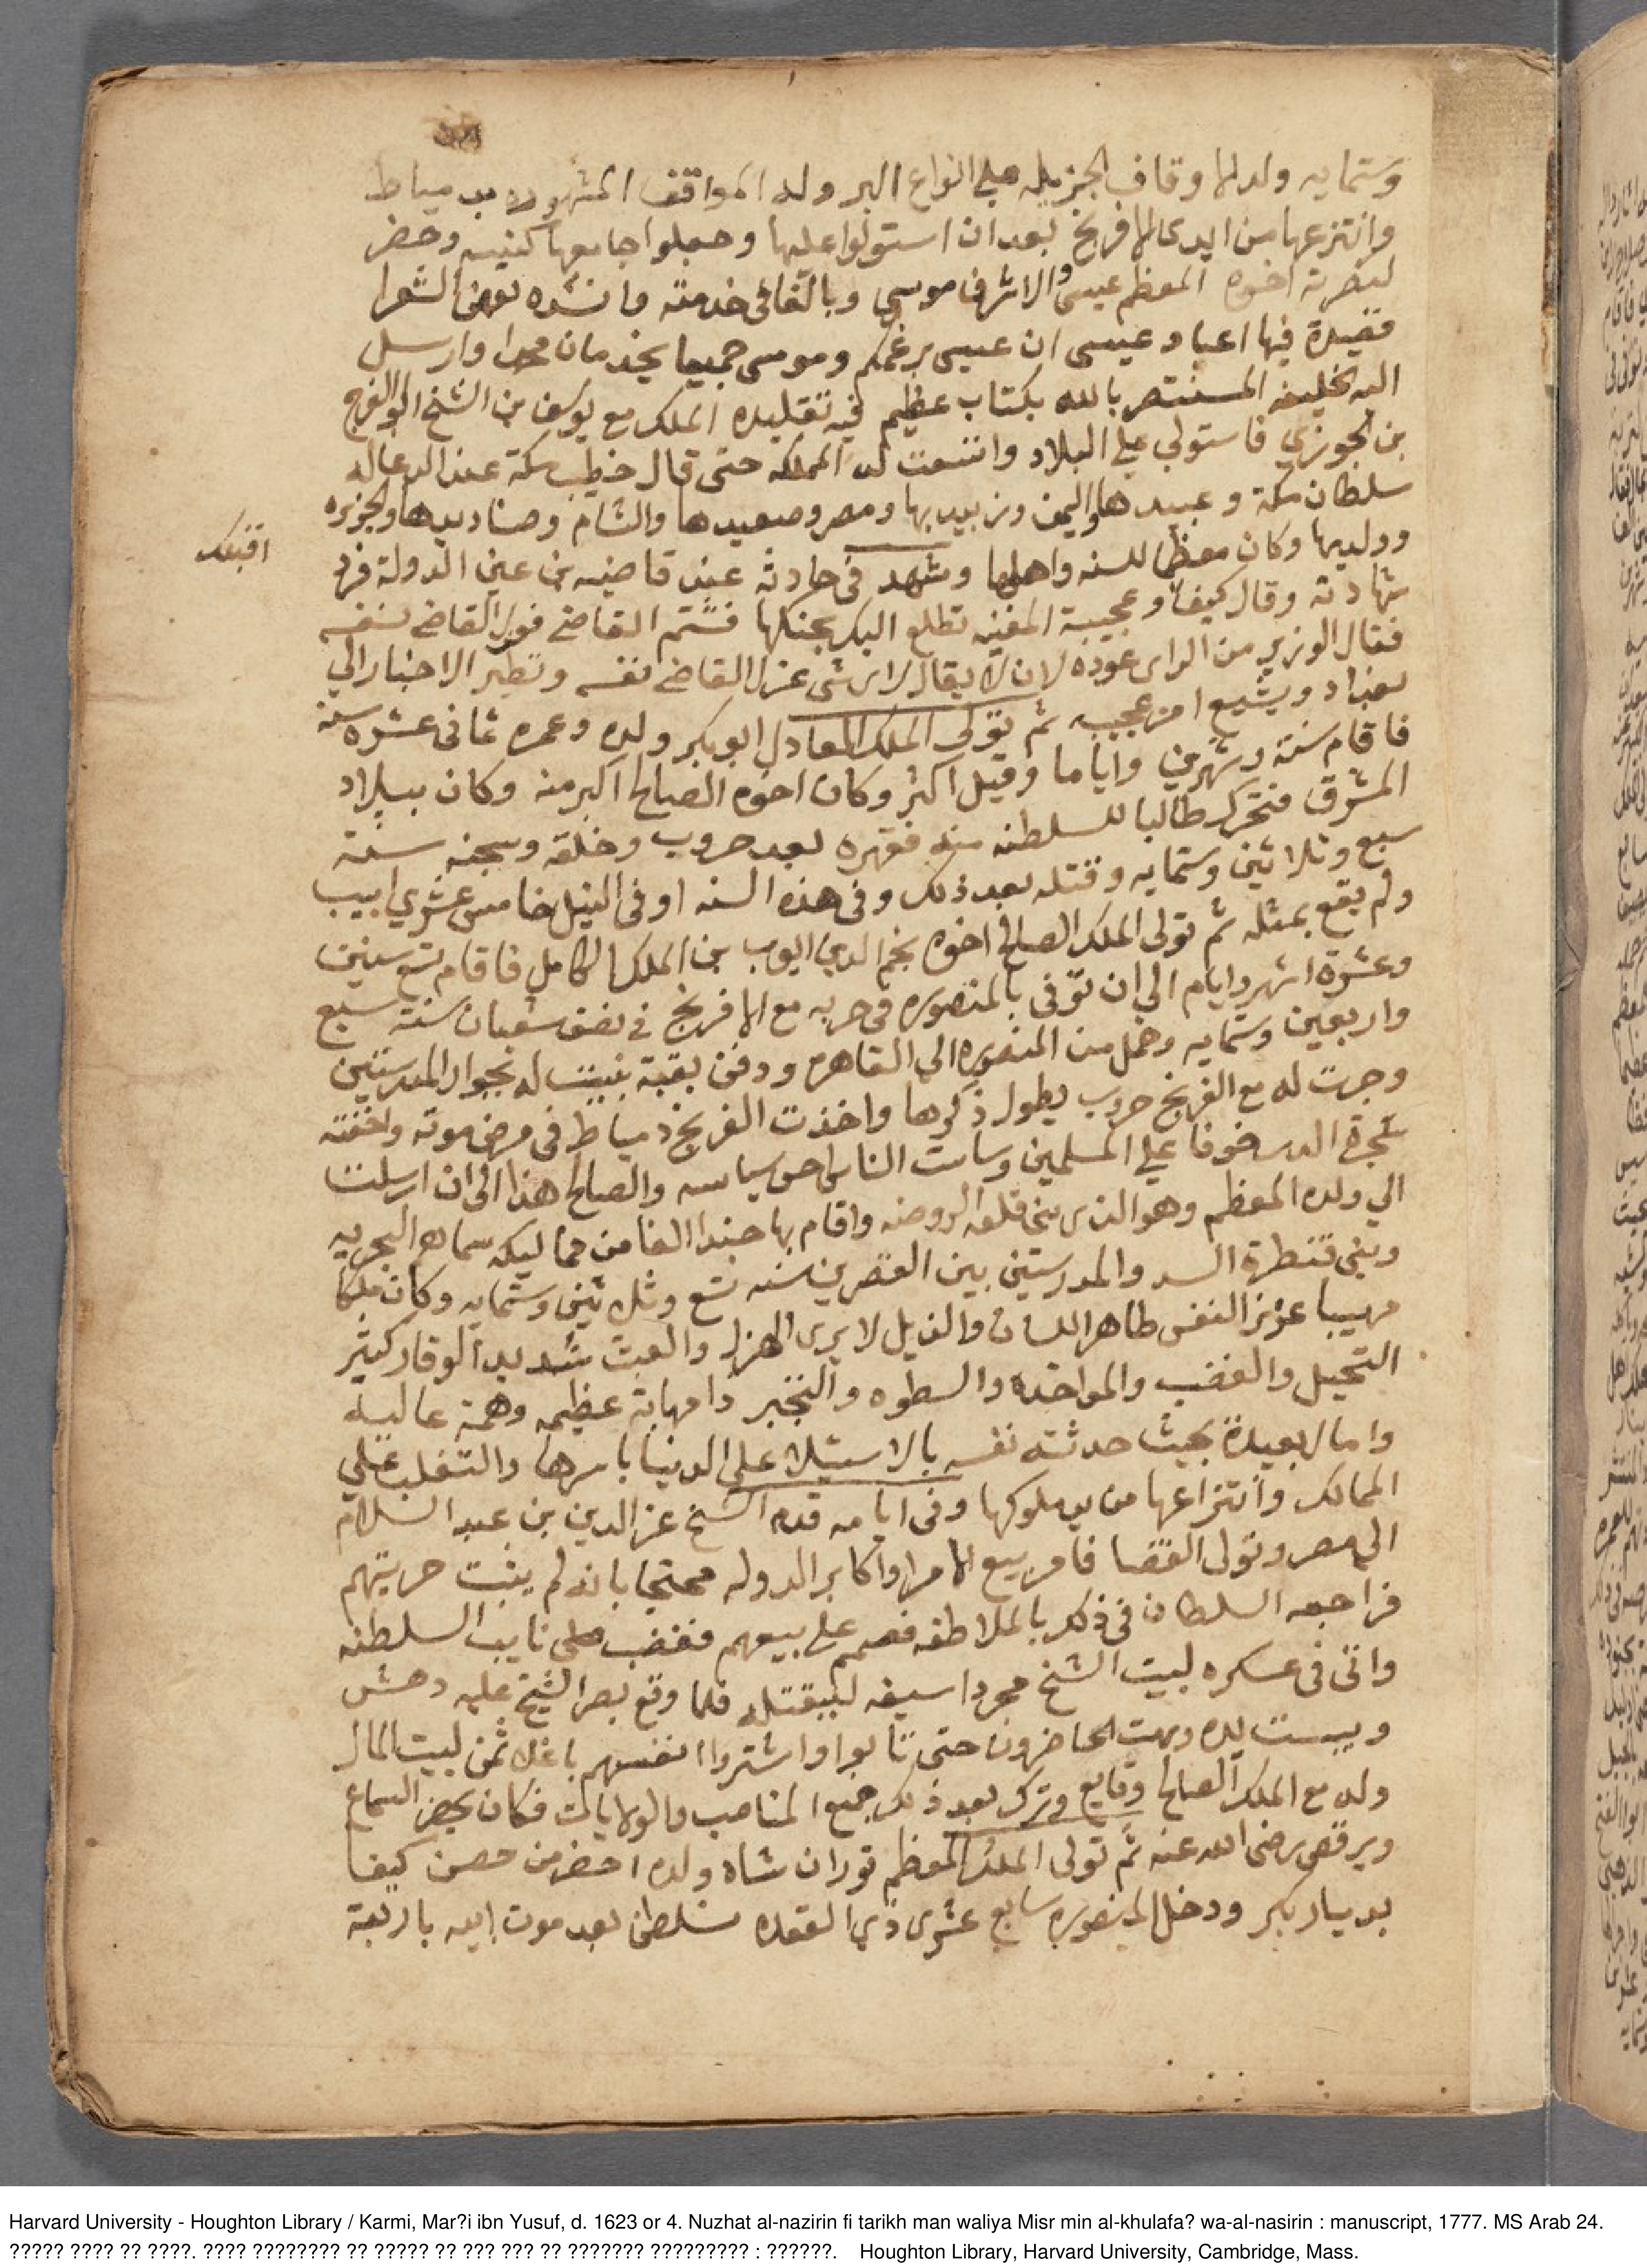 وستمايه وله الاوقاف الجزيله على انواع البر وله المواقف المشهوره بدمياط
وانتزعها من ايدى الافرنج بعد ان استولوا عليها وجعلوا جامعها كنيسه وحضر
لنصرته اخوه المعظم عيسى والاشرف موسي وبالغا فى خدمته وانشده بعض الشعرا
قصيدة فيها اعباد عيسى ان عيسى برغمكم وموسى جميعا يخدمان محمدا وارسل
اليه الخليفه المستنصر بالله بكتاب عظيم فيه تقليده الملك مع يوسف بن الشيخ ابو الفرج
بن الجوزي فاستولي علي البلاد واتسعت له المملكه حتى قال خطيب مكة عند الدعا له
سلطان مكة وعبيدها واليمن وزبيدها ومصر وصعيدها والشام وصناديدها والجزيره
ووليدها وكان معظما للسنه واهلها وشهد فى حادثه عند قاضيه بن عين الدولة فرد
اقبلك
شهادته وقال كيف وعجيبة المغنيه تطلع اليك بجنكها فشتم القاضى فعزل القاضى نفسه
فقال الوزير من الراى عوده لان لا يقال لاي شى عزل القاضى نفسه وتطير الاخبار الي
بغداد ويشيع امر عجيبه ثم تولى الملك العادل ابو بكر ولده وعمره ثمانى عشره سنه
فاقام سنة وشهرين واياما وقيل اكثر وكان اخوه الصالح اكبر منه وكان ببلاد
المشرق فتحرك طالبا للسلطنه منه فقهره بعد حروب وخلعه وسجنه سنة
سبع وثلاثين وستمايه وقتله بعد ذلك وفى هذه السنه اوفى النيل خامس عشري ابيب
ولم يقع بمثله ثم تولى الملك الصالح اخوه نجم الدين ايوب بن الملك الكامل فاقام تسع سنين
وعشرة اشهر وايام الي ان توفى بالمنصوره فى حربه مع الافرنج فى نصف شعبان سنة سبع
واربعين وستمايه وحمل من المنصوره الى القاهره ودفن بقبة بنيت له بجوار المدرستين
وجرت له مع الفرنج حروب يطول ذكرها واخذت الفرنج دمياط فى مرض موته واخفته
شجرة الدر خوفا علي المسلمين وساست الناس احسن سياسه والصالح هذا الى ان ارسلت
الي ولده المعظم وهو الذى بنى قلعه الروضه واقام بها جندا الفا من مماليكه سماهم البحريه
وبنى قنطرة السد والمدرستين بين القصرين سنه تسع وثلاثين وستمايه وكان ملكا
مهيبا عزيز النفس طاهر اللسان والذيل لا يرى الهزل والعبث شديد الوقار كثير
التحيل والغضب والمواخذه والسطوه والتجبر ذا مهابة عظيمه وهمة عاليه
وامال بعيدة بحيث حدثته نفسه بالاستيلا على الدنيا باسرها والتغلب على
الممالك وانتزاعها من يد ملوكها وفى ايامه قدم الشيخ عز الدين بن عبد السلام
الى مصر وتولى القضا فامر ببيع الامرا واكابر الدوله محتجا بانه لم يثبت حريتهم
فراجعه السلطان فى ذلك بالملاطفه فصمم على بيعهم فغضب على نايب السلطنه
واتى فى عسكره لبيت الشيخ مجردا سيفه ليقتله فلما وقع بصر الشيخ عليه دهش
ويبست يده وبهت الحاضرون حتى تابوا واشتروا انفسهم باغلا ثمن لبيت المال
وله مع الملك الصالح وقايع وترك بعد ذلك جميع المناصب والولايات فكان يحضر السماع
ويرقص رضى الله عنه ثم تولى الملك المعظم توران شاه ولده احضر من حصن كيفا
بديار بكر ودخل المنصوره سابع عشرى ذي القعده تسلطن بعد موت ابيه باربعة
Harvard University - Houghton Library / Karmi, Mar?i ibn Yusuf, d. 1623 or 4. Nuzhat al-nazirin fi tarikh man waliya Misr min al-khulafa? wa-al-nasirin : manuscript, 1777. MS Arab 24.
????? ???? ?? ????. ???? ???????? ?? ????? ?? ??? ??? ?? ??????? ????????? : ??????. Houghton Library, Harvard University, Cambridge, Mass.